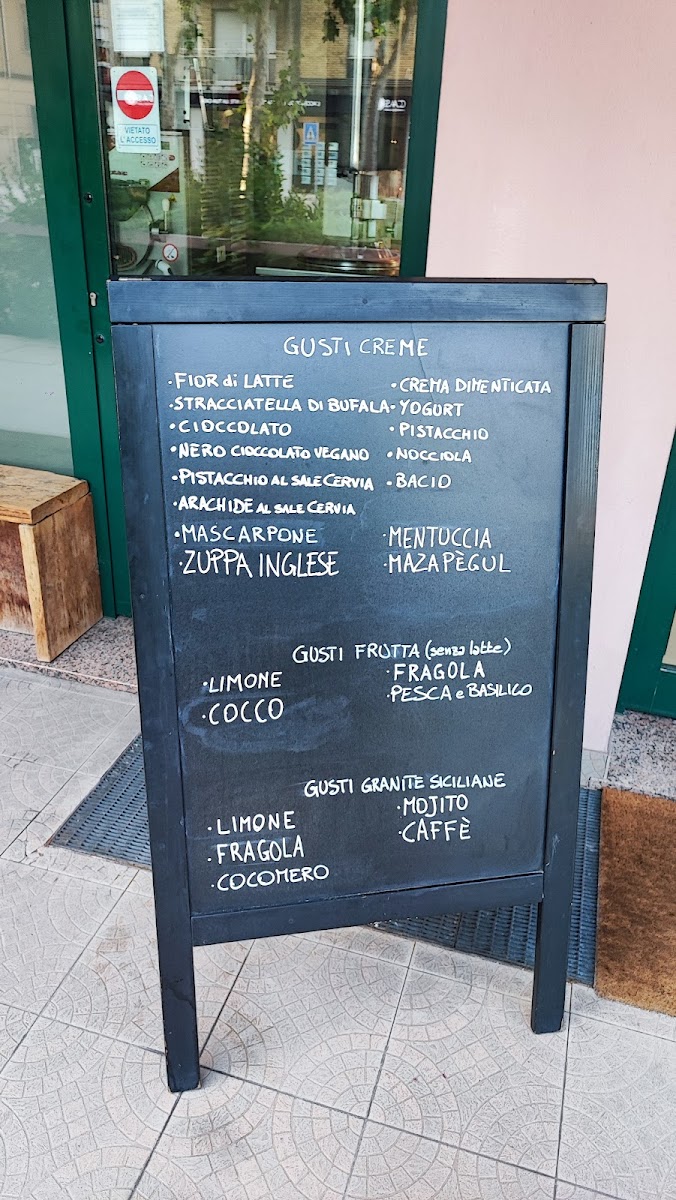 VIETATO
L'ACCESSO
GUSTI CREME
·FIOR di LATTE
·STRACCIATELLA DI BUFALA
·CIOCCOLATO
·NERO CIOCCOLATO VEGANO
·PISTACCHIO AL SALE CERVIA
·ARACHIDE AL SALE CERVIA
·MASCARPONE
·ZUPPA INGLESE
·CREMA DIMENTICATA
·YOGURT
·PISTACCHIO
·NOCCIOLA
·BACIO
·MENTUCCIA
·MAZAPÈGUL
GUSTI FRUTTA (senza latte)
·LIMONE
·COCCO
·FRAGOLA
·PESCA e BASILICO
GUSTI GRANITE SICILIANE
·LIMONE
·FRAGOLA
·COCOMERO
·MOJITO
·CAFFÈ